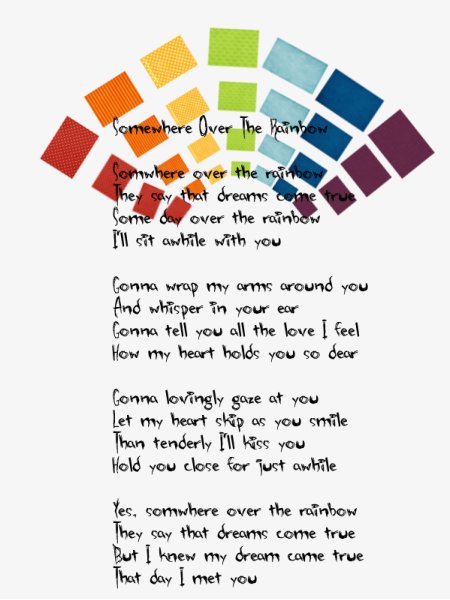 Somewhere Over The Rainbow
Somwhere over the rainbow
They say that dreams come true
Some day over the rainbow
I'll sit awhile with you
Gonna wrap my arms around you
And whisper in your ear
Gonna tell you all the love I feel
How my heart holds you so dear
Gonna lovingly gaze at you
Let my heart skip as you smile
Than tenderly I'll kiss you
Hold you close for just awhile
Yes, somwhere over the rainbow
They say that dreams come true
But I knew my dream came true
That day I met you